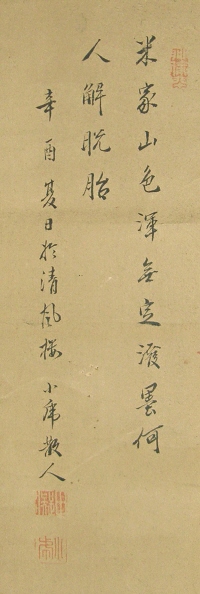 米家山色渾無定潑墨何
人解脱胎
辛酉夏日於清風樓小席散人